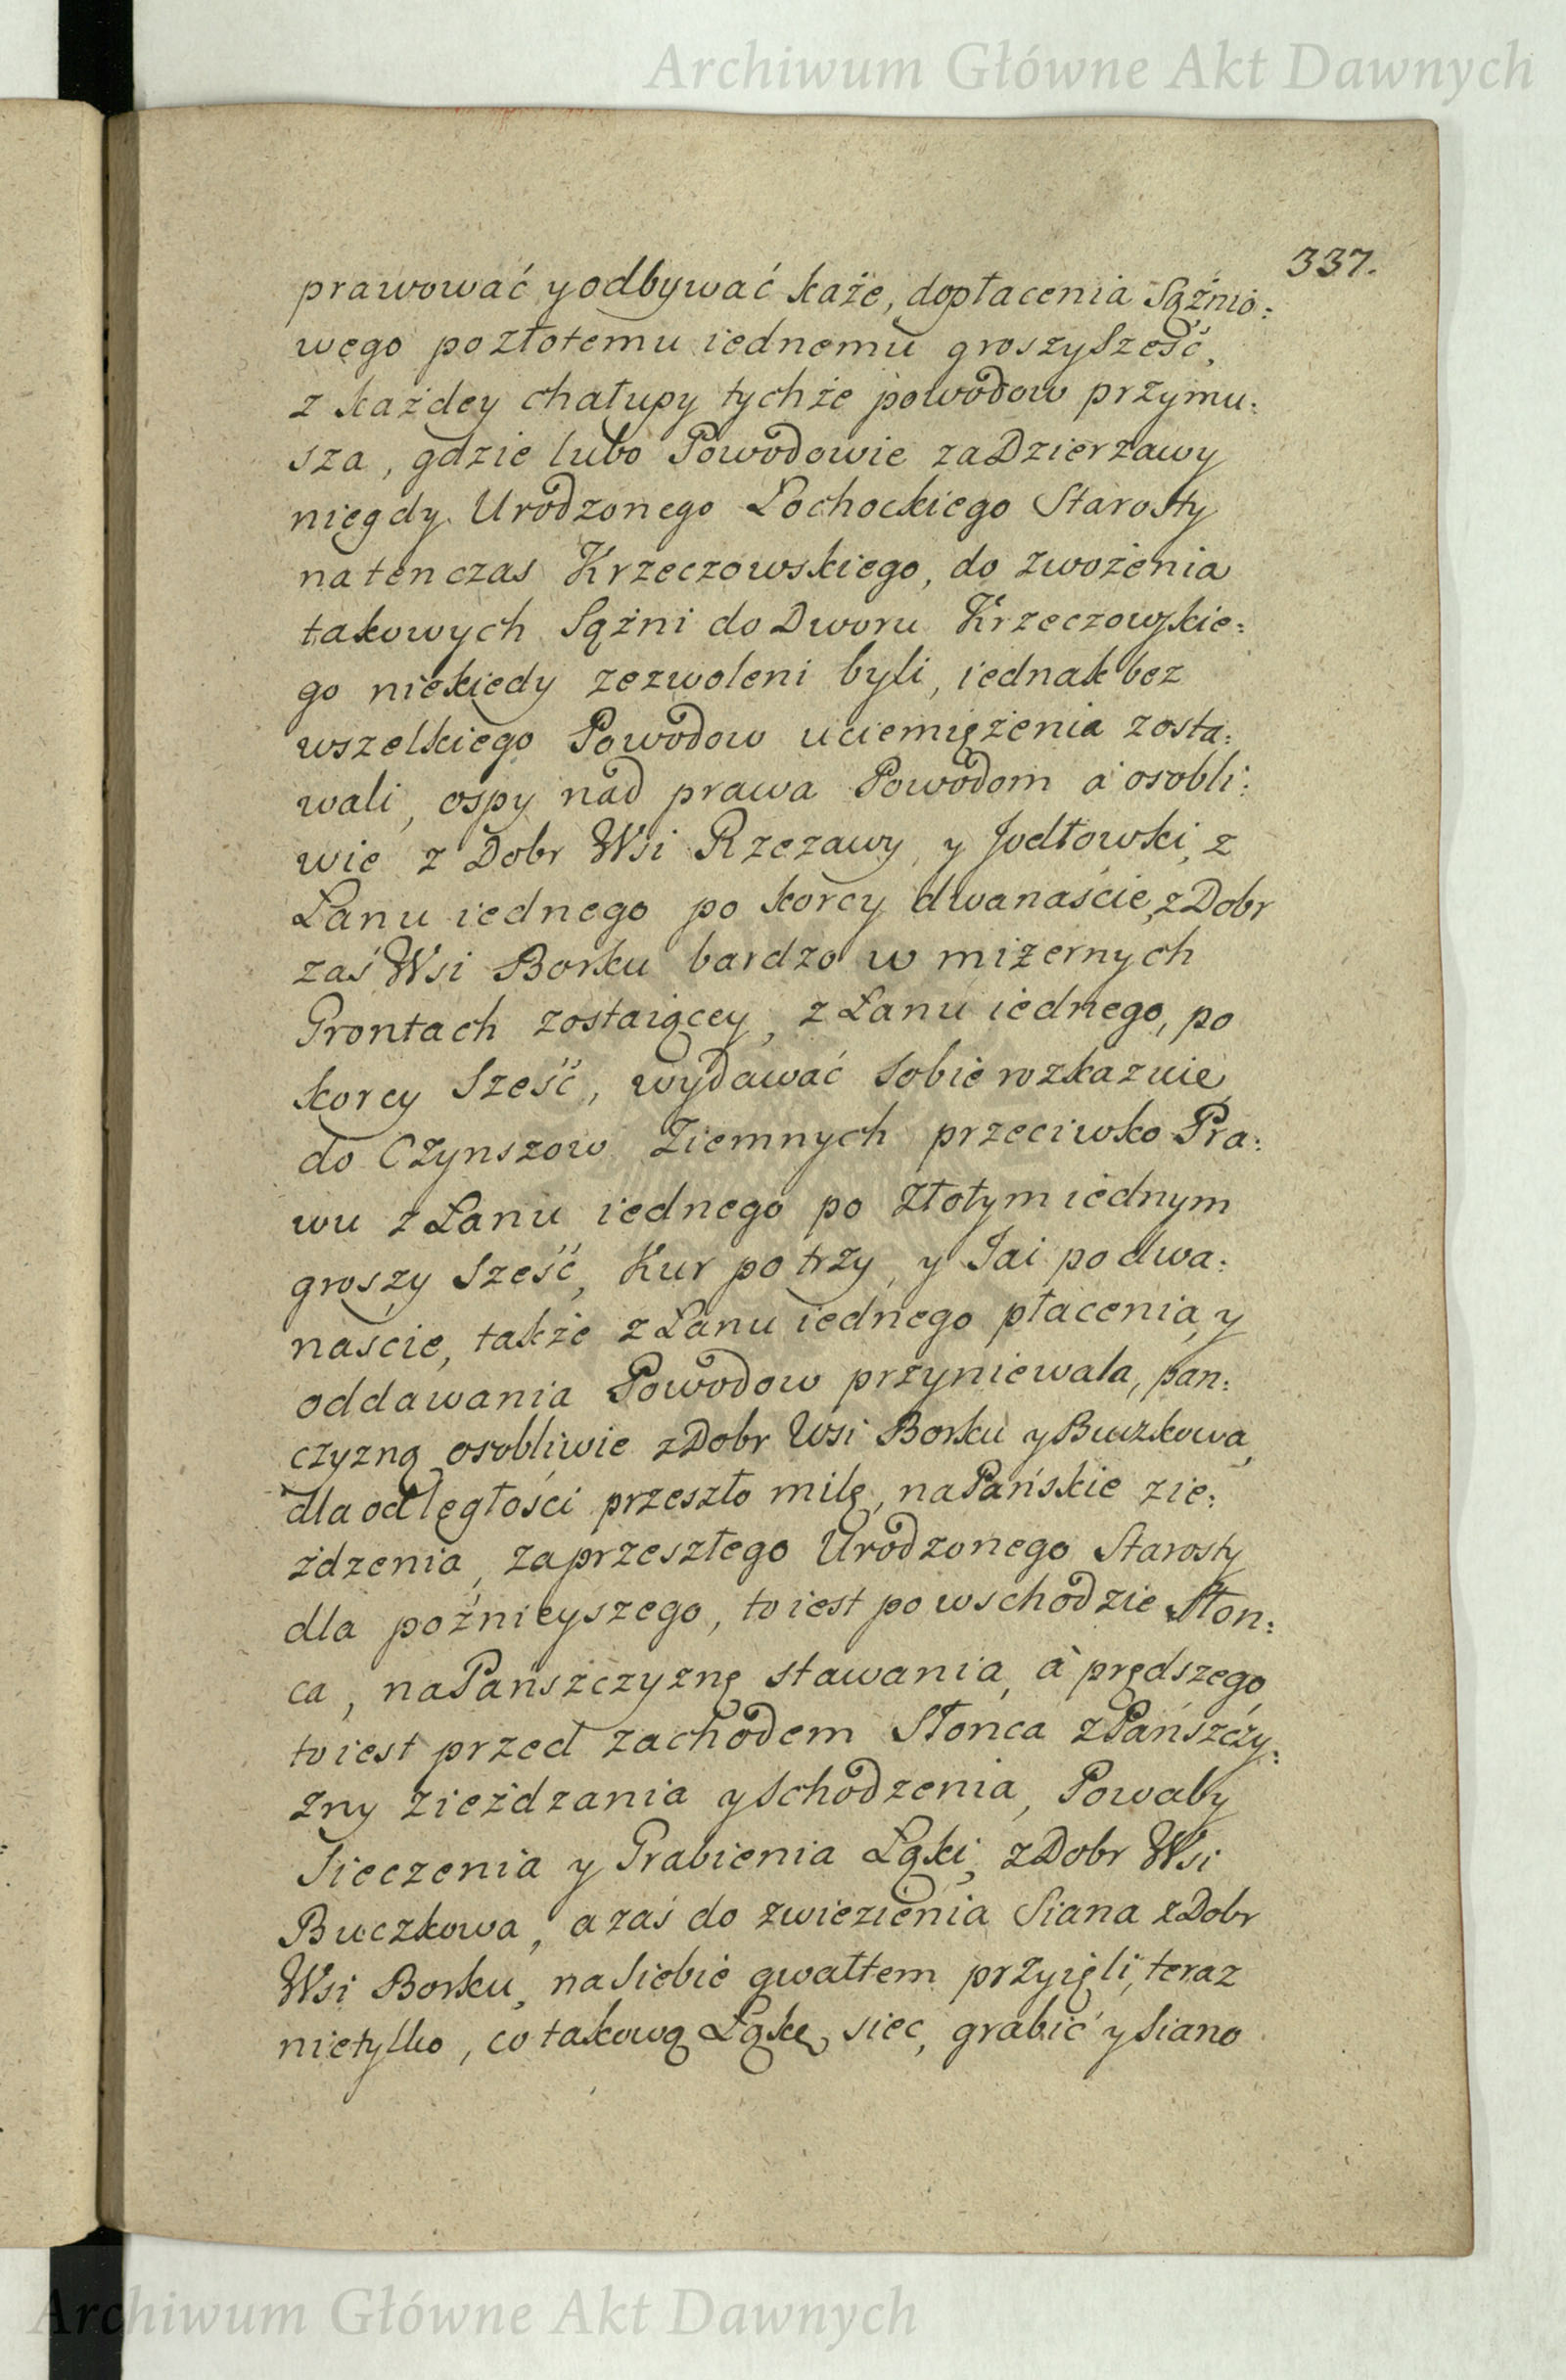 Archiwum Główne Akt Dawnych
337.
prawować y odbywać każe, dopłacenia Sążnio:
wego po złotemu iednemu groszy Sześć,
z każdey chałupy tychże powodow przymu:
sza, gdzie lubo Powodowie za Dzierzawy
niegdy Urodzonego Łochockiego Starosty
natenczas Krzeczowskiego, do zwożenia
takowych Sążni do Dworu Krzeczowskie:
go niekiedy zezwoleni byli, iednak bez
wszelkiego Powodow uciemiężenia zosta:
wali, ospy nad prawa Powodom a osobli:
wie z Dobr Wsi Rzezawy, y Jodłowki, z
Łanu iednego po korcy dwanaście, z Dobr
zaś Wsi Borku bardzo w mizernych
Grontach zostaiącey, z Łanu iednego, po
korcy Sześć, wydawać Sobie rozkazuie,
do Czynszow Ziemnych przeciwko Pra:
wu z Łanu iednego po Złotym iednym
groszy Sześć, Kur po trzy, y Jai po dwa:
nascie, także z Łanu iednego płacenia, y
oddawania Powodow przyniewala, pan:
czyzną osobliwie z Dobr Wsi Borku y Buczkowa,
dla odległości przeszło milę, na Pańskie zie:
żdzenia, zaprzeszłego Urodzonego Starosty
dla poźnieyszego, to iest po wschodzie Słon:
ca, na Pańszczyznę stawania, a prędszego
to iest przed zachodem Słonca z Pańszczy:
zny zieżdzania y Schodzenia, Powaby
Sieczenia y Grabienia Łąki, z Dobr Wsi
Buczkowa, a zaś do zwiezienia Siana z Dobr
Wsi Borku, na Siebie gwałtem przyięli, teraz
nietylko, co takową Łąkę siec, grabić y Siano
Archiwum Główne Akt Dawnych